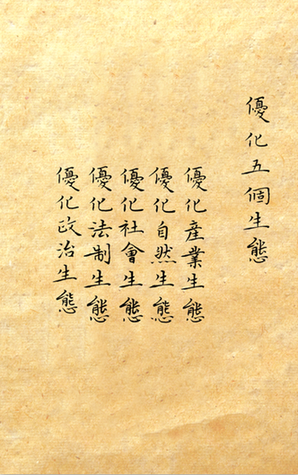 優化五個生態
優化產業生態
優化自然生態
優化社會生態
優化法制生態
優化政治生態